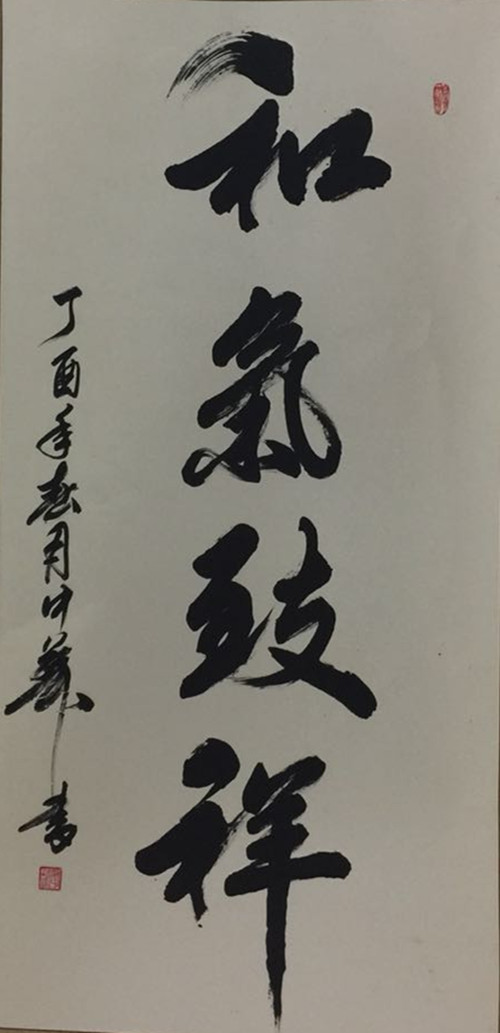 和氣致祥
丁酉年春月中華書